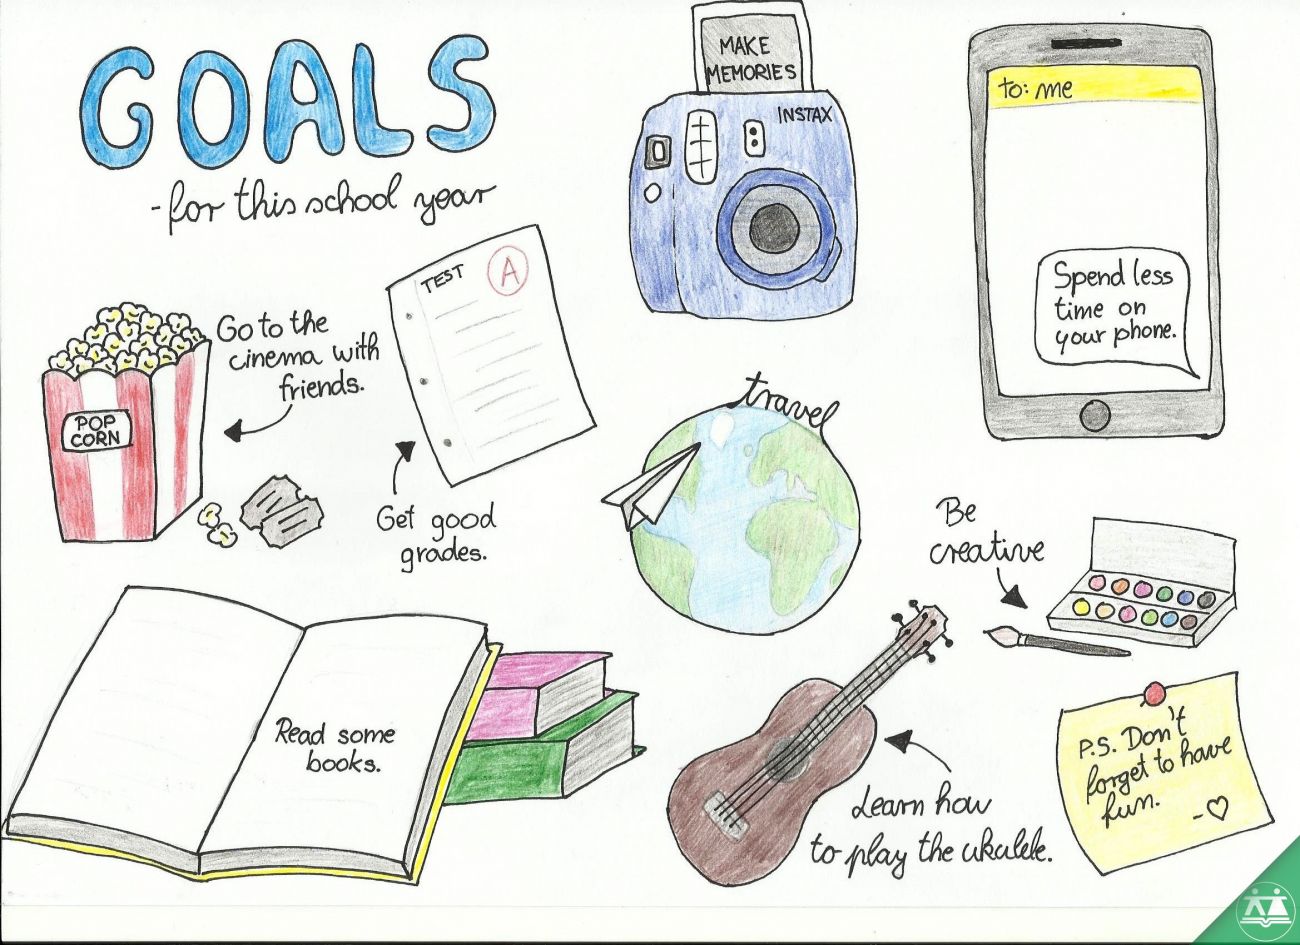 GOALS
- for this school year
MAKE
MEMORIES
INSTAX
to: me
Spend less
time on
your phone.
TEST
A
Go to the
cinema with
friends.
POP
CORN
Get good
grades.
travel
Be
creative
Read some
books.
Learn how
to play the ukulele.
P.S. Don't
forget to have
fun.
- ♡